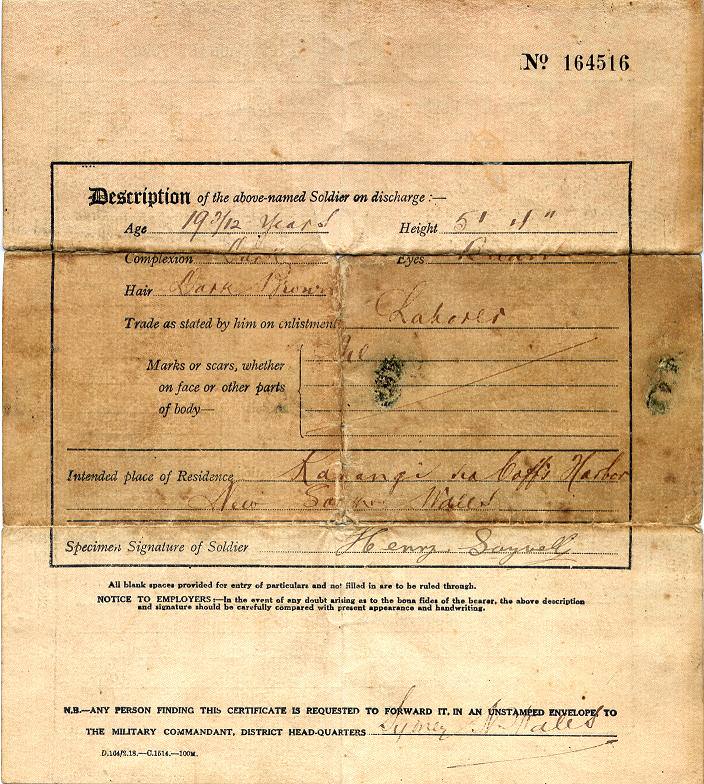 No 164516
Description of the above-named Soldier on discharge :—
Age 19 3/12 Years Height 5' "
Complexion Dark Eyes
Hair Dark Brown
Trade as stated by him on enlistment Laborer
Marks or scars, whether
on face or other parts
of body—
Intended place of Residence Karangi via Coff's Harbor
New South Wales
Specimen Signature of Soldier Henry
All blank spaces provided for entry of particulars and not filled in are to be ruled through.
NOTICE TO EMPLOYERS:—In the event of any doubt arising as to the bona fides of the bearer, the above description
and signature should be carefully compared with present appearance and handwriting.
N.B.—ANY PERSON FINDING THIS CERTIFICATE IS REQUESTED TO FORWARD IT, IN AN UNSTAMPED ENVELOPE, TO
THE MILITARY COMMANDANT, DISTRICT HEAD-QUARTERS Sydney N. Wales
D.164/2.18.—C.1514.—100M.